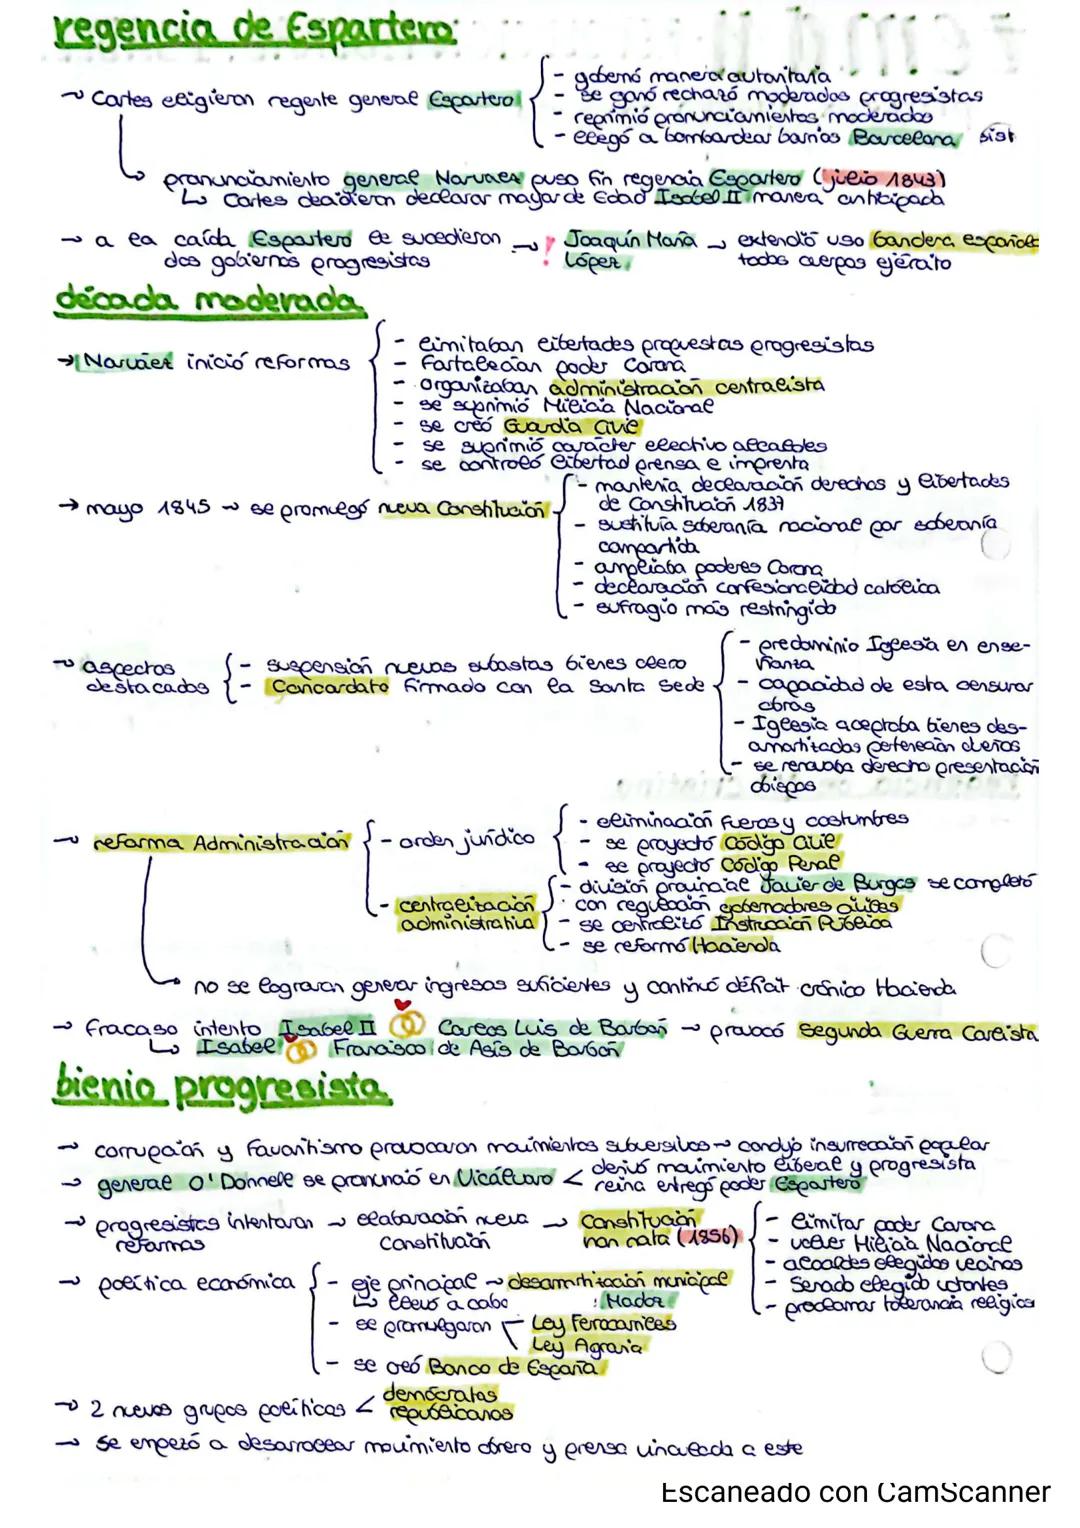 regencia de Espartero
→ Cortes eligieron regente general Espartero
- gobernó manera autoritaria
- se ganó rechazó moderados progresistas
- reprimió pronunciamientos moderados
- llegó a bombardear barrios Barcelona
pronunciamiento general Narváez puso fin regencia Espartero (julio 1843)
↳ Cortes decidieron declarar mayor de Edad Isabel II manera anticipada
→ a la caída Espartero le sucedieron → Joaquín María → extendió uso bandera española
dos gobiernos progresistas ! López todos cuerpos ejército
década moderada
→ Narváez inició reformas
- limitaban libertades propuestas progresistas
- Fortalecían poder Corona
- organizaban administración centralista
- se suprimió Milicia Nacional
- se creó Guardia Civil
- se suprimió carácter electivo alcaldes
- se controló libertad prensa e imprenta
→ mayo 1845 → se promulgó nueva Constitución
- mantenía declaración derechos y libertades
de Constitución 1837
- sustituía soberanía nacional por soberanía
compartida
- ampliaba poderes Corona
- declaración confesionalidad católica
- sufragio más restringido
→ aspectos
destacados
- suspensión nuevas subastas bienes clero
- Concordato firmado con la Santa Sede
- predominio Iglesia en ense-
ñanza
- capacidad de esta censurar
obras
- Iglesia aceptaba bienes des-
amortizados pertenecían dueños
- se renovaba derecho presentación
obispos
→ reforma Administración
- orden jurídico
- eliminación fueros y costumbres
- se proyectó Código Civil
- se proyectó Código Penal
- centralización
administrativa
- división provincial Javier de Burgos se completó
con regulación gobernadores civiles
- se centralizó Instrucción Pública
- se reformó Hacienda
no se lograron generar ingresos suficientes y continuó déficit crónico Hacienda
→ fracaso intento Isabel II Carlos Luis de Borbón → provocó Segunda Guerra Carlista
↳ Isabel Francisco de Asís de Borbón
bienio progresista
→ corrupción y favoritismo provocaron movimientos subversivos → condujo insurrección popular
→ general O'Donnell se pronunció en Vicálvaro < derivó movimiento liberal y progresista
reina entregó poder Espartero
→ progresistas intentaron → elaboración nueva → Constitución
reformas constitución non nata (1856)
- limitar poder Corona
- volver Milicia Nacional
- alcaldes elegidos vecinos
- Senado elegido votantes
- proclamar tolerancia religiosa
→ política económica
- eje principal → desamortización municipal
↳ llevó a cabo : Madoz
- se promulgaron Ley Ferrocarriles
Ley Agraria
- se creó Banco de España
→ 2 nuevos grupos políticos < demócratas
republicanos
→ se empezó a desarrollar movimiento obrero y prensa vinculada a este
Escaneado con CamScanner